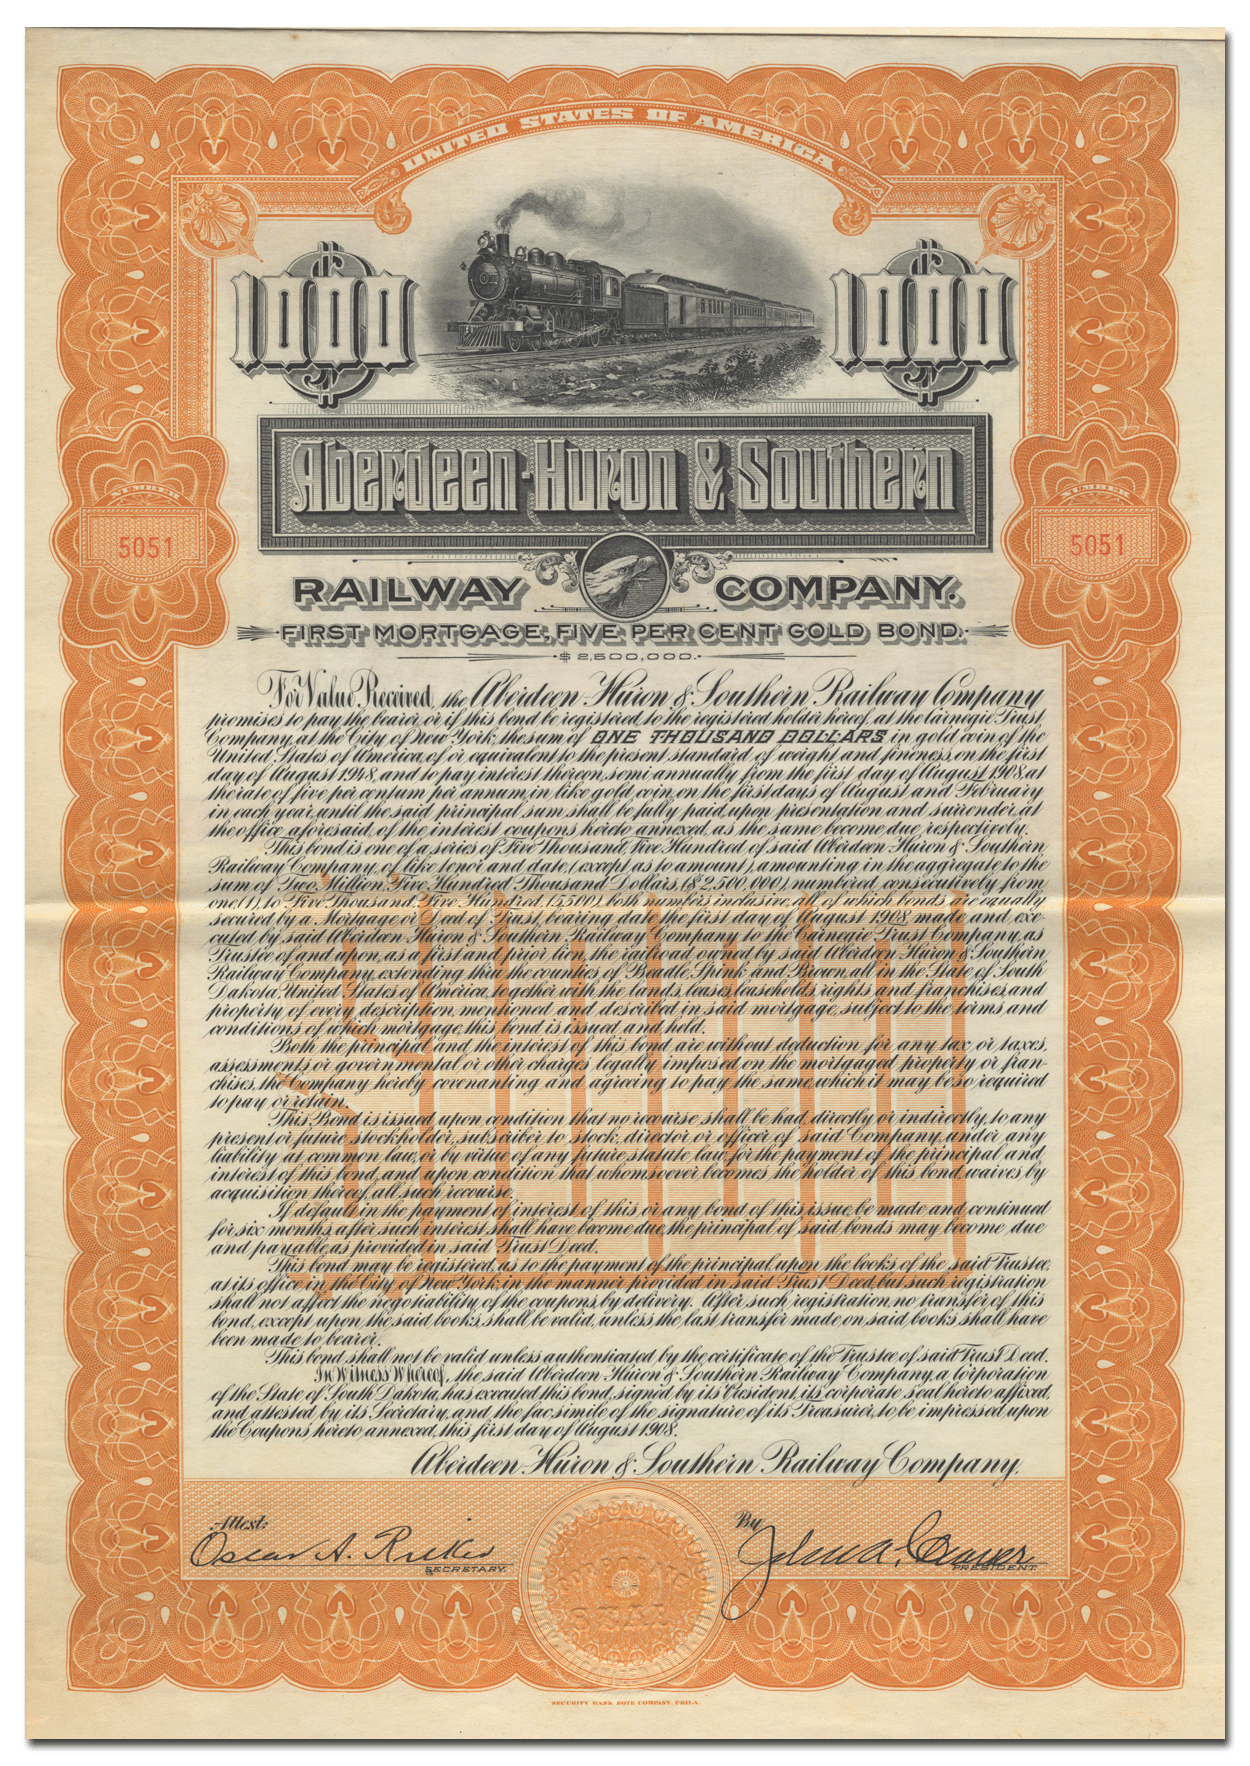 UNITED STATES OF AMERICA
1000 1000
Aberdeen-Huron & Southern
NUMBER NUMBER
5051 5051
RAILWAY COMPANY.
FIRST MORTGAGE, FIVE PER CENT GOLD BOND.
$2,500,000.
For Value Received, the Aberdeen-Huron & Southern Railway Company
promises to pay the bearer, or if this bond be registered to the registered holder hereof, at the Carnegie Trust
Company, at the City of New York, the sum of ONE THOUSAND DOLLARS in gold coin of the
United States of America, of or equivalent to the present standard of weight and fineness, on the first
day of August 1948, and to pay interest thereon, semi-annually from the first day of August 1908, at
the rate of five per centum per annum, in like gold coin, on the first days of August and February
in each year, until the said principal sum shall be fully paid, upon presentation and surrender, at
the office aforesaid, of the interest coupons hereto annexed, as the same become due, respectively.
This bond is one of a series of Five Thousand, Five Hundred of said Aberdeen-Huron & Southern
Railway Company, of like tenor and date, (except as to amount), amounting in the aggregate to the
sum of Two Million Five Hundred Thousand Dollars, ($2,500,000) numbered consecutively from
one, (1), to Five Thousand, Five Hundred, (5,500), both numbers inclusive, all of which bonds are equally
secured by a Mortgage or Deed of Trust, bearing date the first day of August 1908, made and exe-
cuted by said Aberdeen-Huron & Southern Railway Company to the Carnegie Trust Company, as
Trustee of and upon, as a first and prior lien, the railroad owned by said Aberdeen-Huron & Southern
Railway Company, extending thru the counties of Beadle, Spink and Brown, all in the State of South
Dakota, United States of America, together with the lands, leases, leaseholds, rights and franchises, and
property of every description, mentioned and described in said mortgage, subject to the terms and
conditions of which mortgage, this bond is issued and held.
Both the principal and the interest of this bond are without deduction for any tax, or taxes,
assessments or governmental or other charges legally imposed on the mortgaged property or fran-
chises, the Company hereby covenanting and agreeing to pay the same, which it may be so required
to pay or retain.
This Bond is issued upon condition that no recourse shall be had, directly or indirectly, to any
present or future stockholder, subscriber to stock, director or officer of said Company, under any
liability at common law, or by virtue of any future statute law, for the payment of the principal and
interest of this bond, and upon condition that whomsoever becomes the holder of this bond, waives by
acquisition thereof, all such recourse.
If default in the payment of interest of this or any bond of this issue, be made and continued
for six months, after such interest shall have become due, the principal of said bonds may become due
and payable, as provided in said Trust Deed.
This bond may be registered, as to the payment of the principal, upon the books of the said Trustee,
at its office in the City of New York, in the manner provided in said Trust Deed, but such registration
shall not affect the negotiability of the coupons, by delivery. After such registration, no transfer of this
bond, except upon the said books, shall be valid, unless the last transfer made on said books shall have
been made to bearer.
This bond shall not be valid unless authenticated by the certificate of the Trustee of said Trust Deed.
In Witness Whereof, the said Aberdeen-Huron & Southern Railway Company, a Corporation
of the State of South Dakota, has executed this bond, signed by its President, its corporate seal hereto affixed,
and attested by its Secretary, and the fac-simile of the signature of its Treasurer, to be impressed upon
the Coupons hereto annexed, this first day of August 1908.
Aberdeen-Huron & Southern Railway Company,
Attest: By
Oscar A.
SECRETARY. PRESIDENT.
SEAL
SECURITY BANK NOTE COMPANY, PHILA.